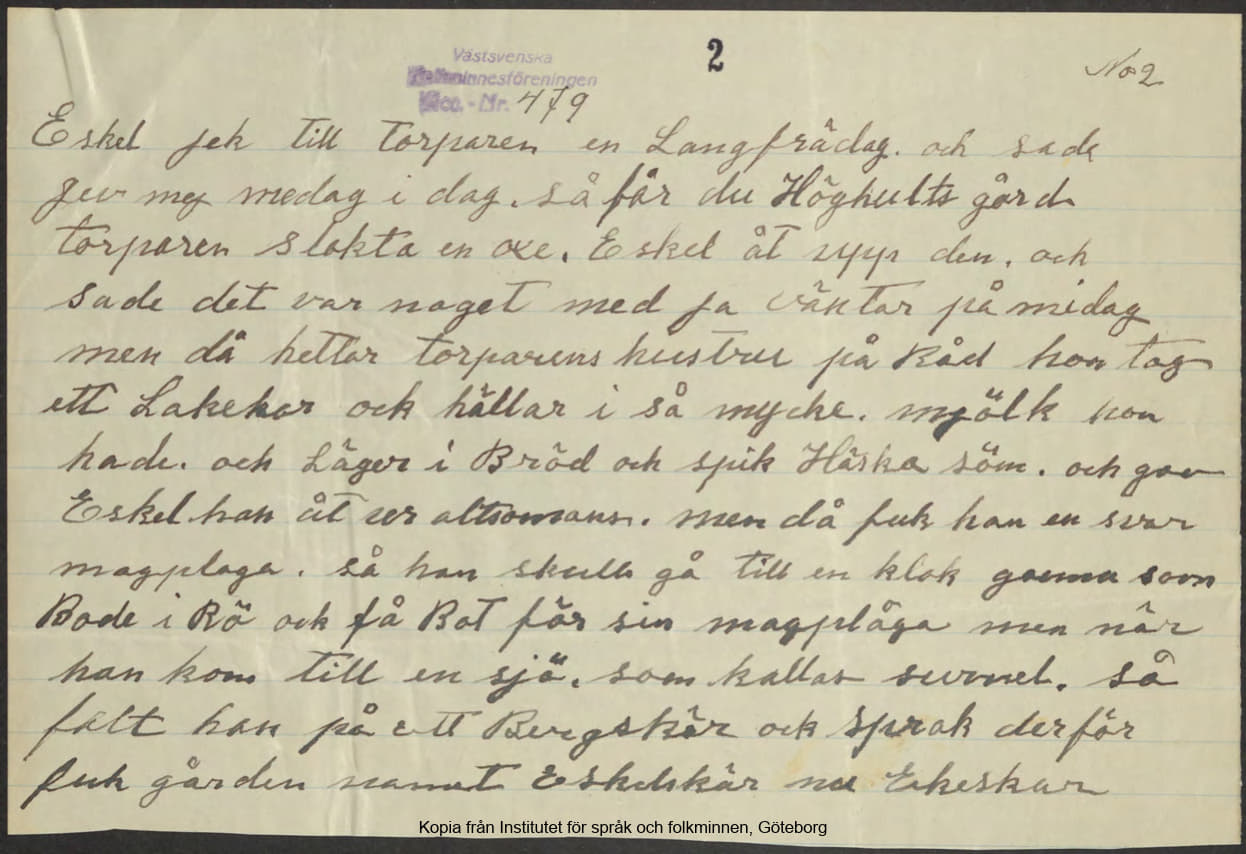 Västsvenska
2
No 2
Folkminnesföreningen
Acc. - Nr. 479
Eskel jek till torparen en Langfrädag. och sade
gev mej medag i dag. så får du Höghults gård
torparen slakta en oxe. Eskel åt upp den. och
sade det var naget med ja väntar på midag
men då hettar torparens hustru på Råd hon tag
ett Lakekar ock hällar i så mycke. mjölk hon
hade. och Läger i Bröd och spik Häska söm. och gav
Eskel han åt ur altsomans. men då fuk han en svar
magplaga. så han skulle gå till en klok gumma som
Bode i Rö ock få Bot för sin magplåga men när
han kom till en sjö. som kallas surnel. så
falt han på ett Bergskär ock sprak derför
fuk gården namnet Eskelskär nu Ekeskar
Kopia från Institutet för språk och folkminnen, Göteborg